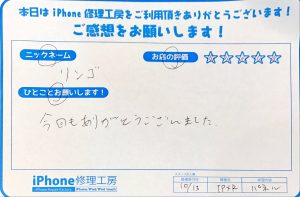 本日はiPhone修理工房をご利用頂きありがとうございます!
ご感想をお願いします!
ニックネーム
リンゴ
お店の評価
☆☆☆☆☆
ひとことお願いします!
今回もありがとうございました
iPhone修理工房
10/13